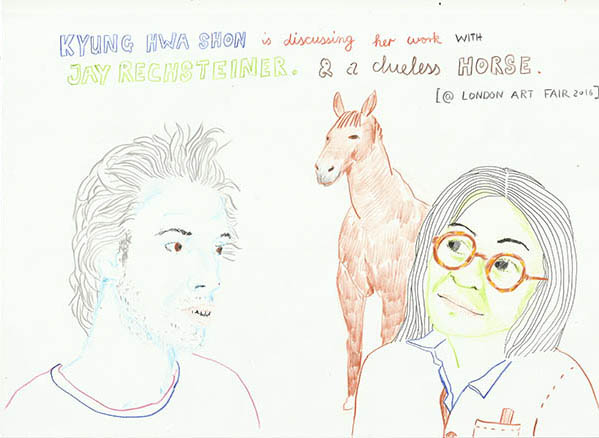 KYUNG HWA SHON is discussing her work WITH
JAY RECHSTEINER. & a clueless HORSE.
[@ LONDON ART FAIR 2016]